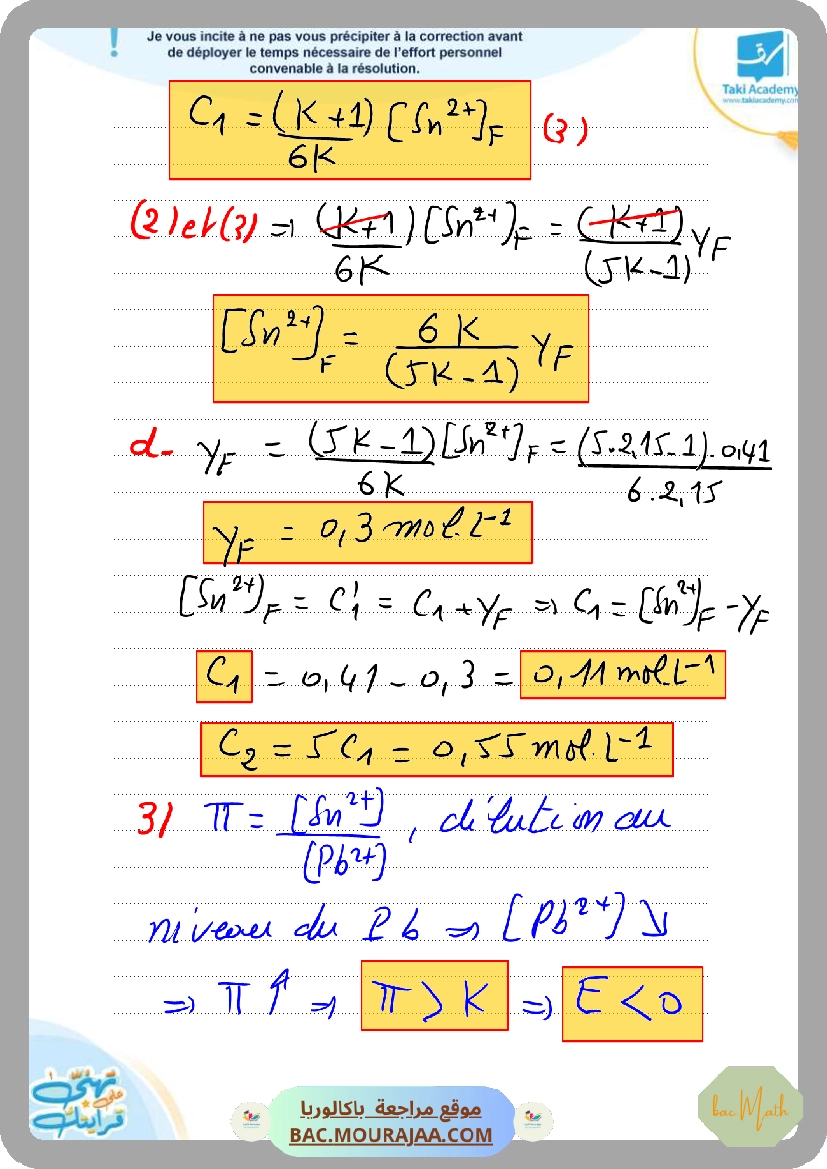 Je vous incite à ne pas vous précipiter à la correction avant
de déployer le temps nécessaire de l'effort personnel
convenable à la résolution.
Taki Academy
www.takiacademy.com
C₁ = (K+1)/6K [Sn²⁺]F (3)
(2) et (3) ⇒ (K+1)/6K [Sn²⁺]F = (K+1)/(5K-1) yF
[Sn²⁺]F = 6K/(5K-1) yF
d- yF = (5K-1)[Sn²⁺]F/6K = (5.2,15-1).0,41/6.2,15
yF = 0,3 mol.L⁻¹
[Sn²⁺]F = C'₁ = C₁ + yF ⇒ C₁ = [Sn²⁺]F - yF
C₁ = 0,41 - 0,3 = 0,11 mol.L⁻¹
C₂ = 5C₁ = 0,55 mol.L⁻¹
3) π = [Sn²⁺]/[Pb²⁺], dilution au
niveau du Pb ⇒ [Pb²⁺] ↘
⇒ π ↑ ⇒ π > K ⇒ E < 0
موقع مراجعة باكالوريا
BAC.MOURAJAA.COM
bac Math